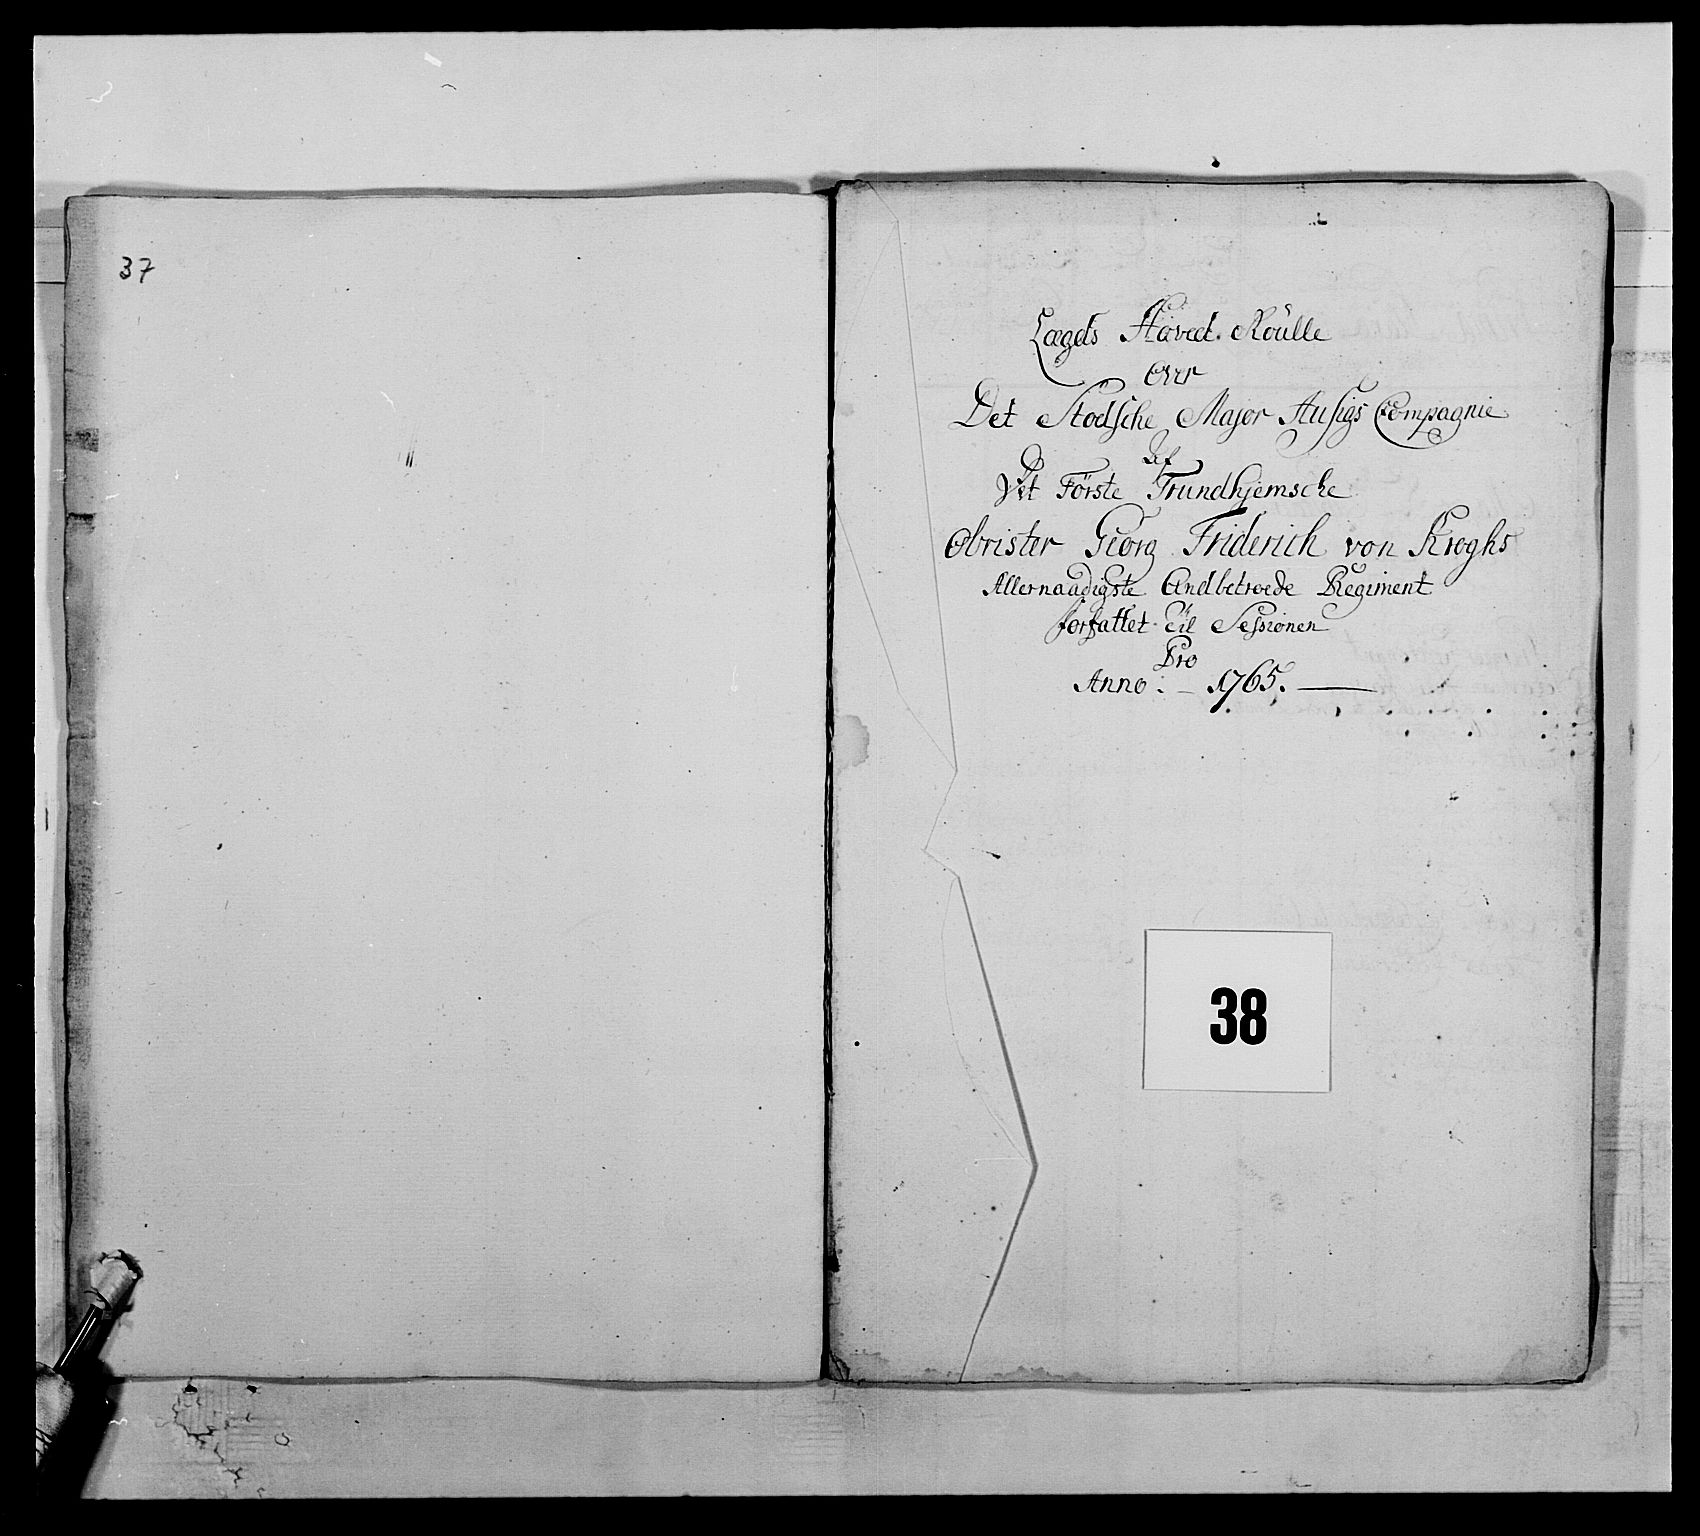 37
Lægds Hoved. Roülle
Over
Det Stodsche Major Ausigs Compagnie
Af
Det Förste Trundhjemsche
Obrister Georg Friderich von Kroghs
Allernaadigste Andbetroede Regiment
forfattet til Sessionen
Pro
Anno: - 1765.
38